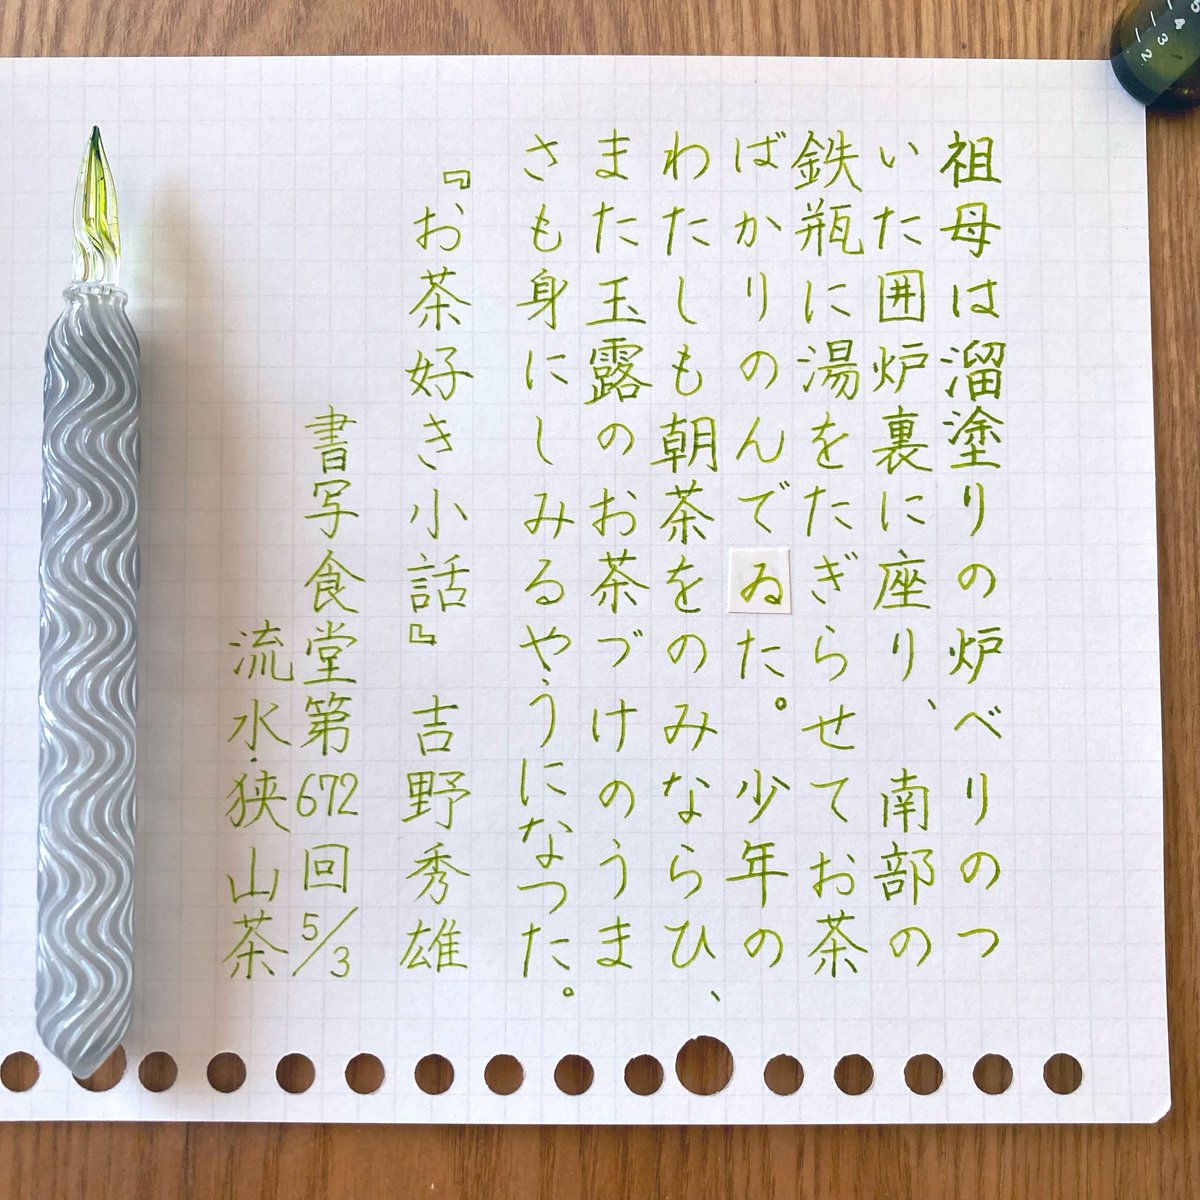 祖母は溜塗りの炉べりのつ
いた囲炉裏に座り、南部の
鉄瓶に湯をたぎらせてお茶
ばかりのんでゐた。少年の
わたしも朝茶をのみならひ、
また玉露のお茶づけのうま
さも身にしみるやうになつた。
『お茶好き小話』 吉野秀雄
書写食堂第672回 5/3
流水・狭山茶
5 4 3 2